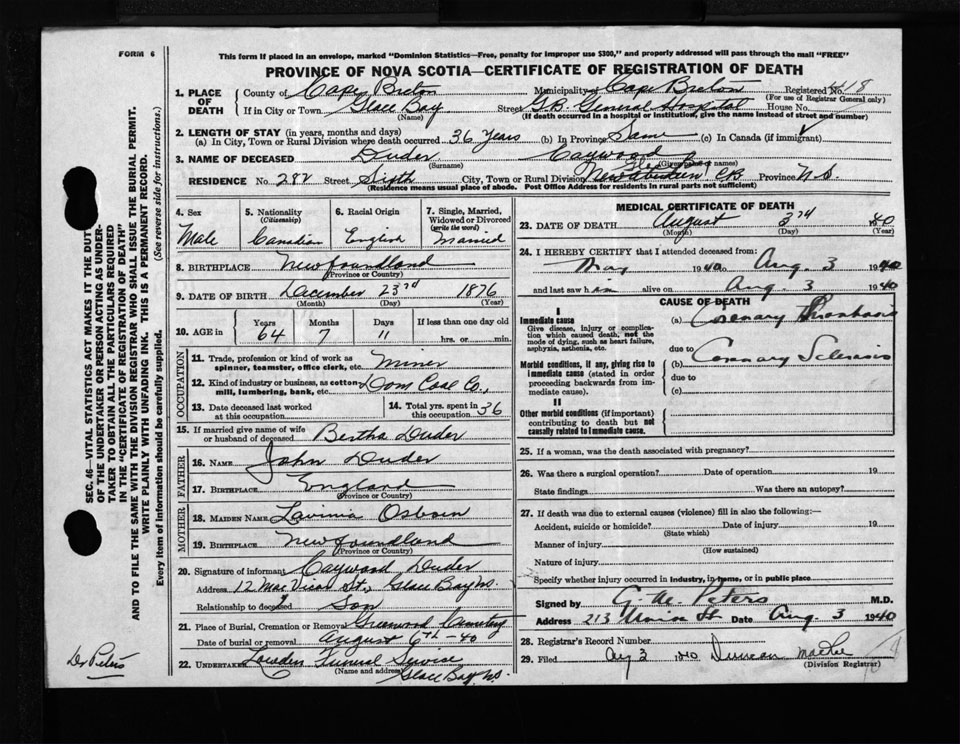 FORM 6
This form if placed in an envelope, marked "Dominion Statistics—Free, penalty for improper use $300," and properly addressed will pass through the mail "FREE"
PROVINCE OF NOVA SCOTIA—CERTIFICATE OF REGISTRATION OF DEATH
1. PLACE OF DEATH
County of Cape Breton Municipality of Cape Breton Registered No.
(For use of Registrar General only)
If in City or Town Glace Bay Street G.B. General Hospital House No.
(Name) (If death occurred in a hospital or institution, give the name instead of street and number)
2. LENGTH OF STAY (in years, months and days)
(a) In City, Town or Rural Division where death occurred 36 Years (b) In Province Same (c) In Canada (if immigrant)
3. NAME OF DECEASED Duder Caywood
(Surname) (Given or names)
RESIDENCE No. 282 Street Sixth City, Town or Rural Division New Aberdeen C.B. Province N.S.
(Residence means usual place of abode. Post Office Address for residents in rural parts not sufficient)
4. Sex
Male
5. Nationality
(Citizenship)
Canadian
6. Racial Origin
English
7. Single, Married, Widowed or Divorced
(write the word)
Married
8. BIRTHPLACE Newfoundland
(Province or Country)
9. DATE OF BIRTH December 23rd 1876
(Month) (Day) (Year)
10. AGE in
Years Months Days If less than one day old
64 7 11 hrs. or min.
OCCUPATION
11. Trade, profession or kind of work as spinner, teamster, office clerk, etc. Miner
12. Kind of industry or business, as cotton mill, lumbering, bank, etc. Dom Coal Co.,
13. Date deceased last worked at this occupation
14. Total yrs. spent in this occupation 36
15. If married give name of wife or husband of deceased Bertha Duder
FATHER
16. NAME John Duder
17. BIRTHPLACE England
(Province or Country)
MOTHER
18. MAIDEN NAME Lavinia Osborn
19. BIRTHPLACE Newfoundland
(Province or Country)
20. Signature of informant Caywood Duder
Address 12 St., Glace Bay N.S.
Relationship to deceased Son
21. Place of Burial, Cremation or Removal Greenwood Cemetery
Date of burial or removal August 6TH-40
22. UNDERTAKER Lowden Funeral Service
(Name and address) Glace Bay N.S.
MEDICAL CERTIFICATE OF DEATH
23. DATE OF DEATH August 3rd 40
(Month) (Day) (Year)
24. I HEREBY CERTIFY that I attended deceased from:
May 1940 to Aug. 3 1940
and last saw him alive on Aug. 3 1940
CAUSE OF DEATH
I
Immediate cause
Give disease, injury or complication which caused death, not the mode of dying, such as heart failure, asphyxia, asthenia, etc.
(a) Coronary Thrombosis
due to
Morbid conditions, if any, giving rise to immediate cause (stated in order proceeding backwards from immediate cause).
(b) Coronary Sclerosis
due to
(c)
II
Other morbid conditions (if important) contributing to death but not causally related to immediate cause.
25. If a woman, was the death associated with pregnancy?
26. Was there a surgical operation? Date of operation 19
State findings Was there an autopsy?
27. If death was due to external causes (violence) fill in also the following:—
Accident, suicide or homicide? Date of injury 19
(State which)
Manner of injury
(How sustained)
Nature of injury
Specify whether injury occurred in industry, in home, or in public place
Signed by C. M. Peters M.D.
Address 213 Main St Date Aug. 3 1940
28. Registrar's Record Number
29. Filed Aug 3 1940 Duncan
(Division Registrar)
SEC. 46—VITAL STATISTICS ACT MAKES IT THE DUTY
OF THE UNDERTAKER OR PERSON ACTING AS UNDERTAKER TO OBTAIN ALL THE PARTICULARS REQUIRED
IN THE "CERTIFICATE OF REGISTRATION OF DEATH"
AND TO FILE THE SAME WITH THE DIVISION REGISTRAR WHO SHALL ISSUE THE BURIAL PERMIT.
WRITE PLAINLY WITH UNFADING INK. THIS IS A PERMANENT RECORD.
Every item of information should be carefully supplied. (See reverse side for instructions.)
Dr Peters